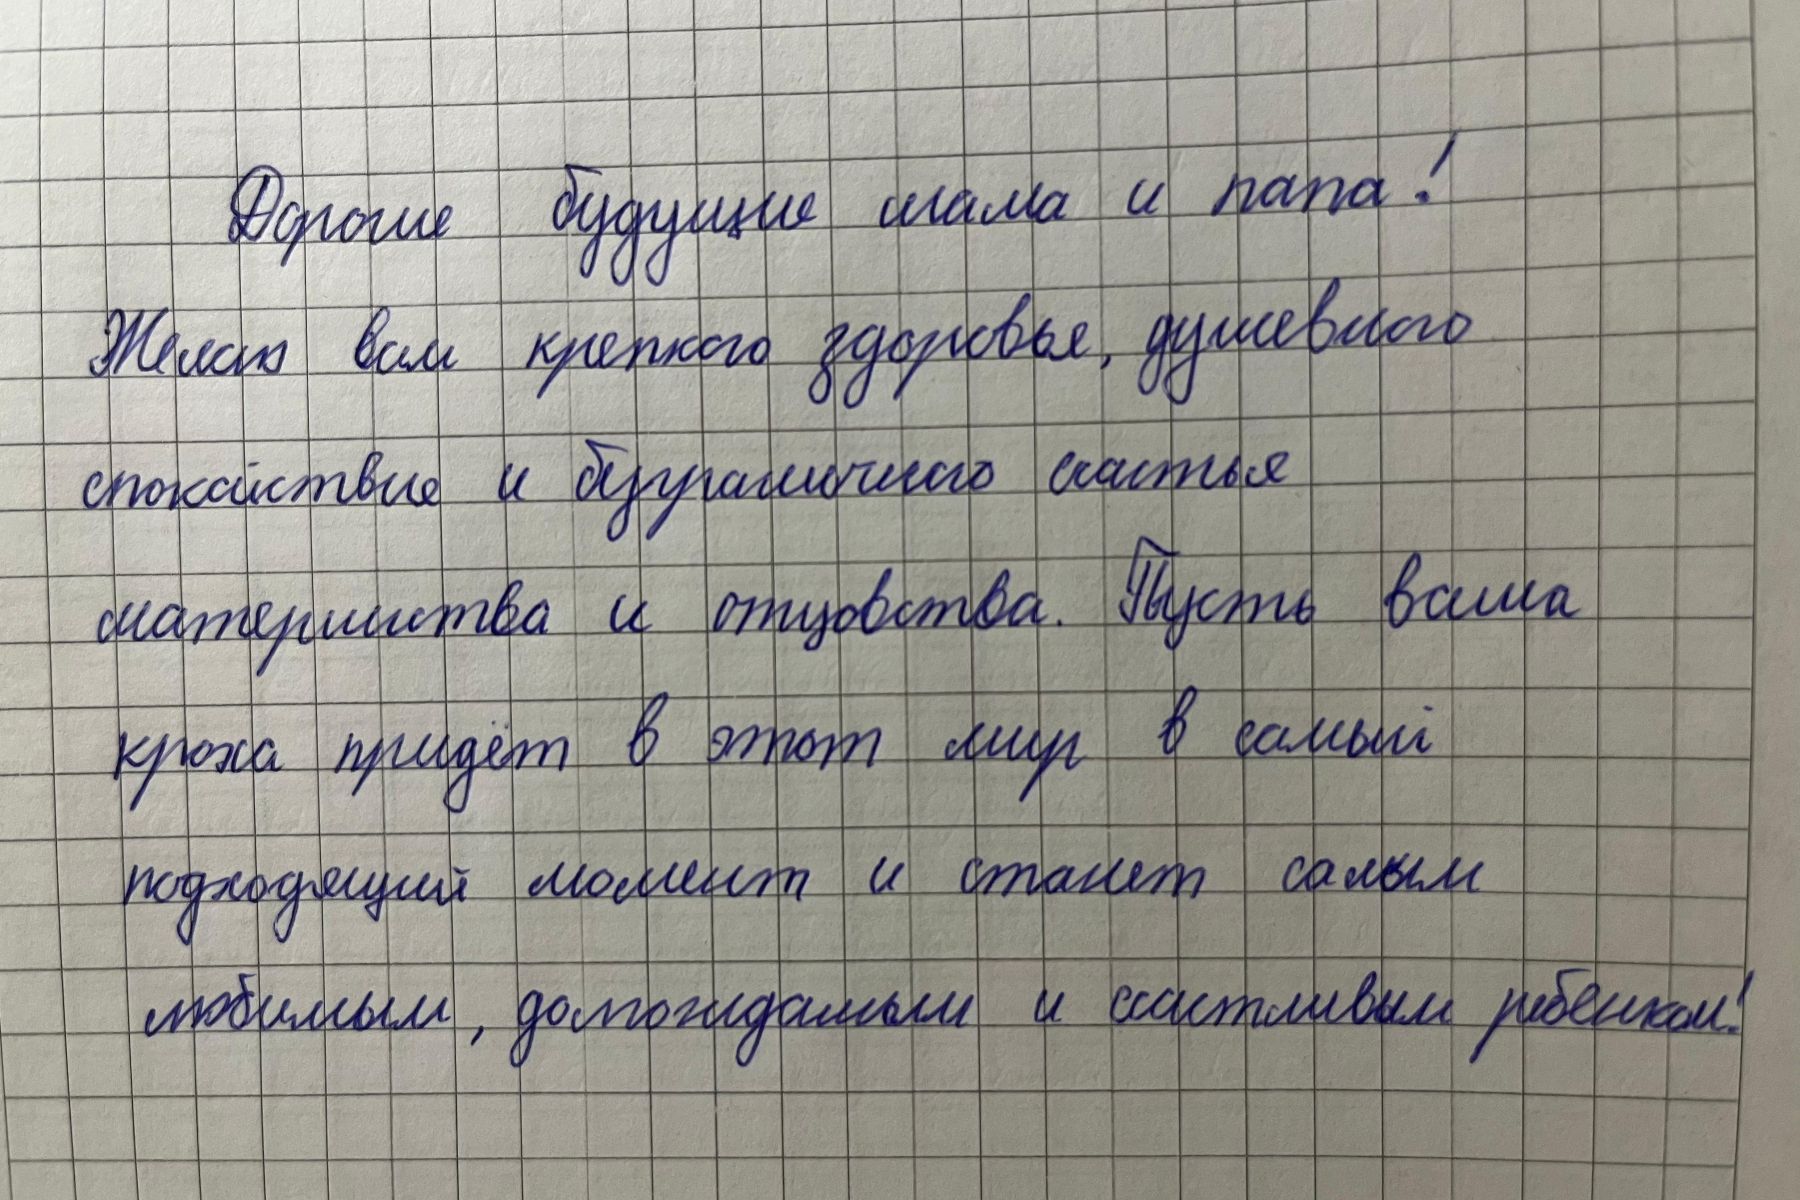 Дорогие будущие мама и папа!
Желаю вам крепкого здоровья, душевного
спокойствие и безграничного счастья
материнства и отцовства. Пусть ваша
кроха придёт в этот мир в самый
подходящий момент и станет самым
любимым, долгожданным и счастливым ребёнком!